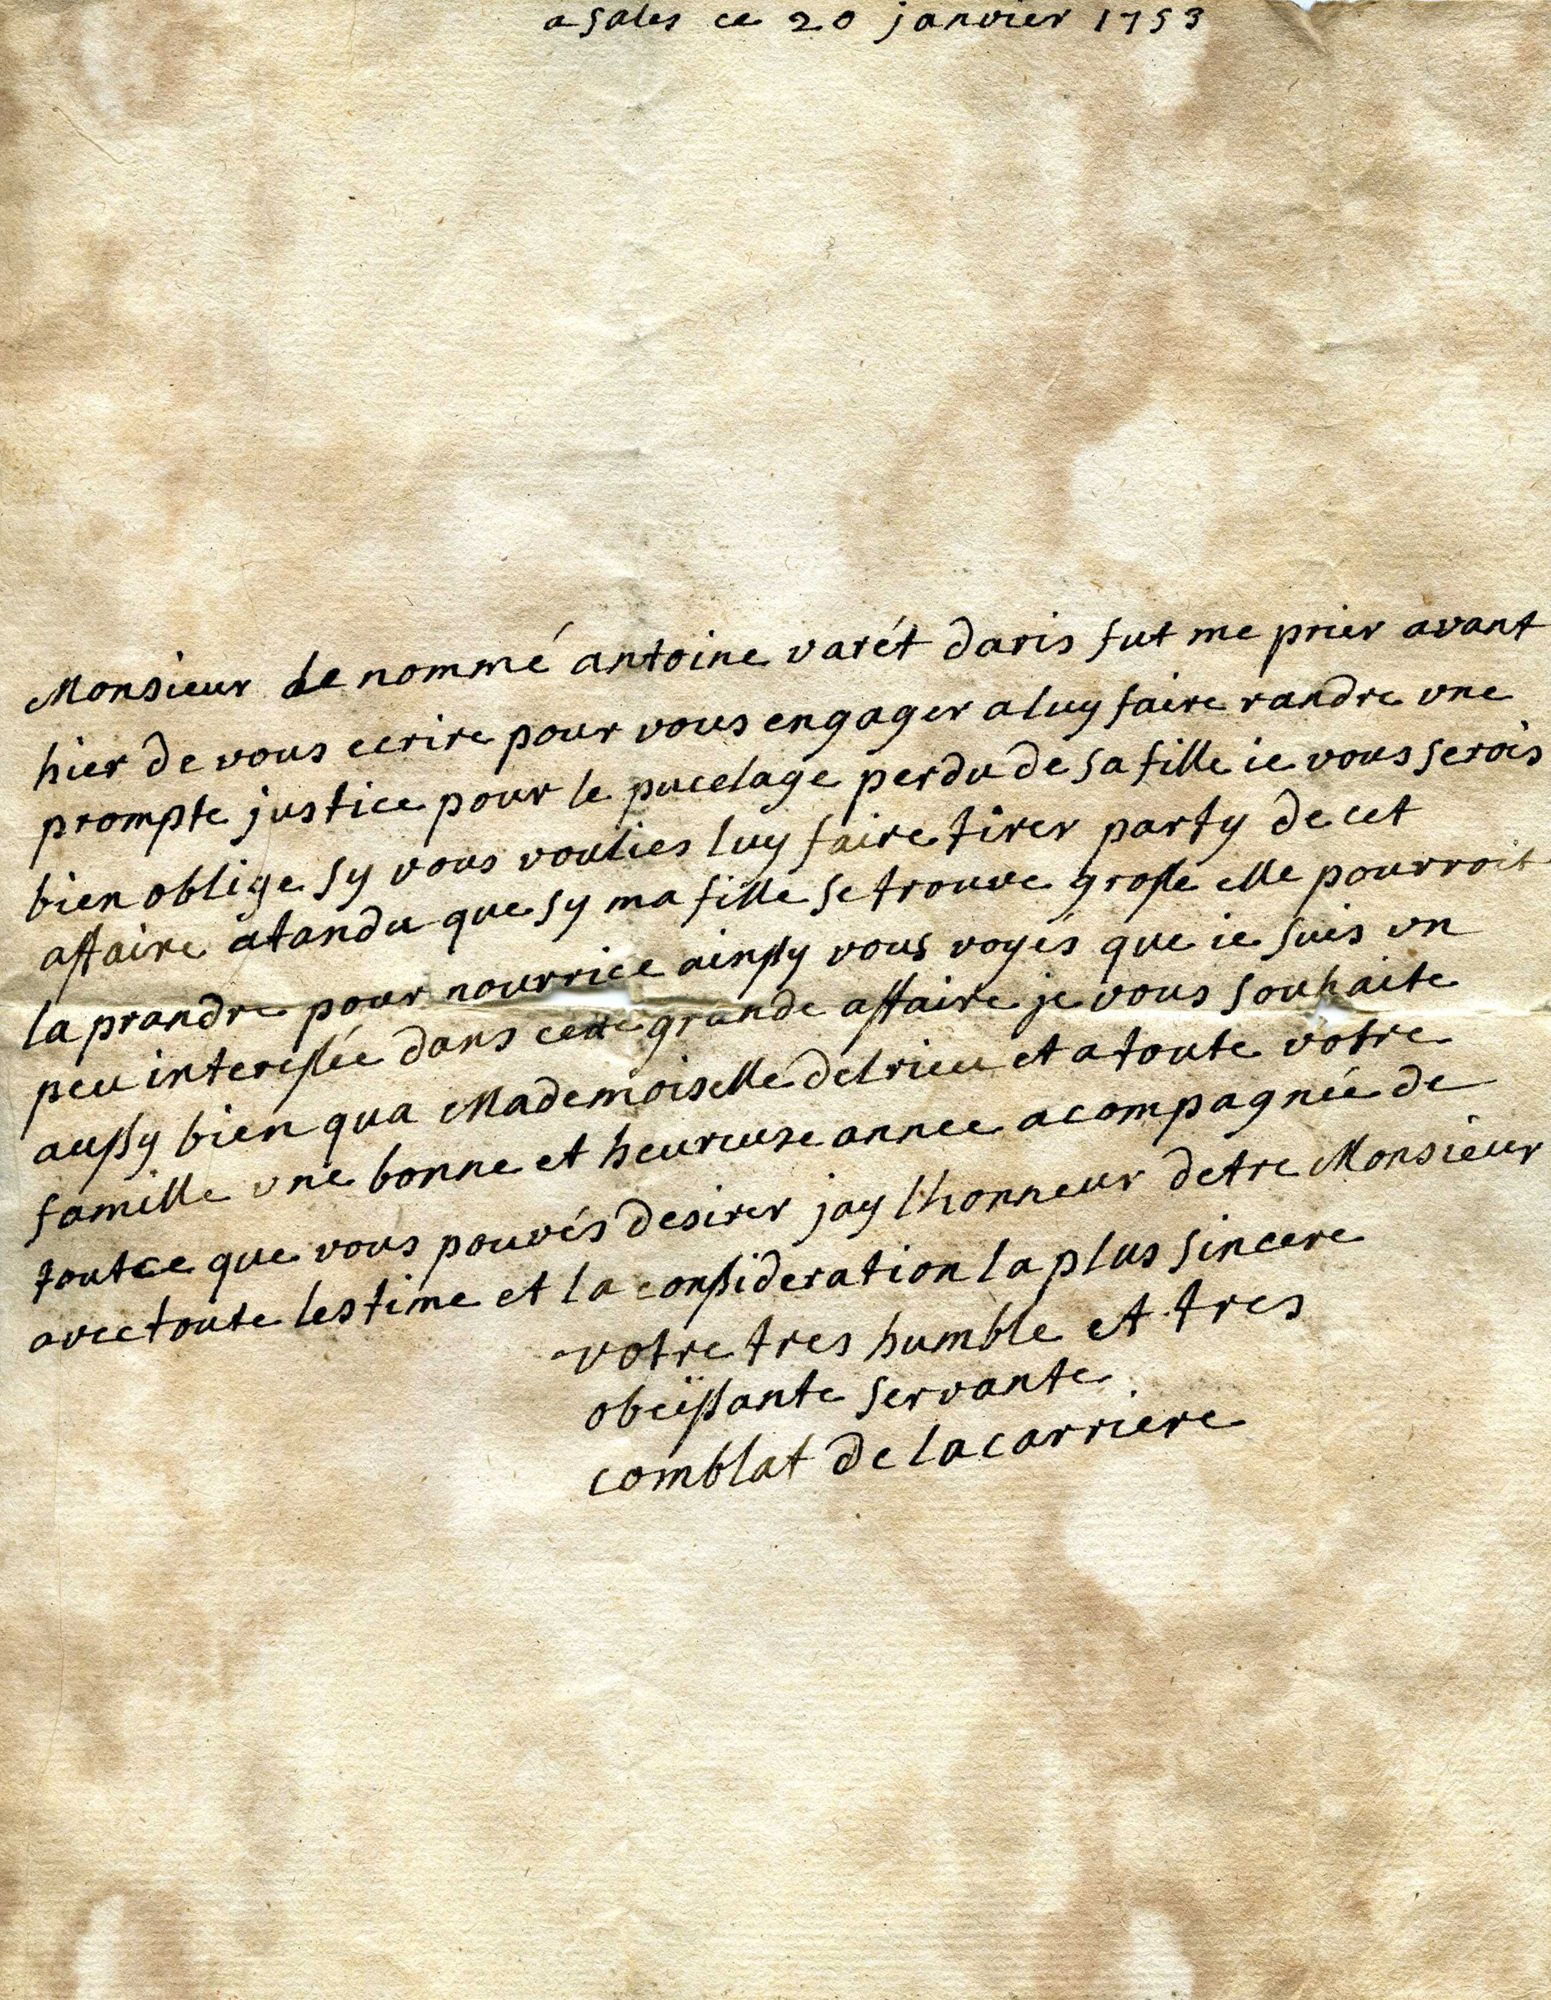 a sales ce 20 janvier 1753
Monsieur le nommé antoine varét daris fut me prier avant
hier de vous ecrire pour vous engager a luy faire randre une
prompte justice pour le pucelage perdu de sa fille ie vous serois
bien oblige sy vous voulies luy faire tirer party de cet
affaire atandu que sy ma fille se trouve grosse elle pourroit
la prandre pour nourrice ainssy vous voyés que ie suis un
peu interessée dans cette grande affaire je vous souhaite
aussy bien qua Mademoiselle delrieu et a toute votre
famille une bonne et heureuse annee acompagnée de
tout ce que vous pouvés desirer jay lhonneur detre Monsieur
avec toute lestime et la conssideration la plus sincere
votre tres humble et tres
obeïssante servante
comblat de lacarriere